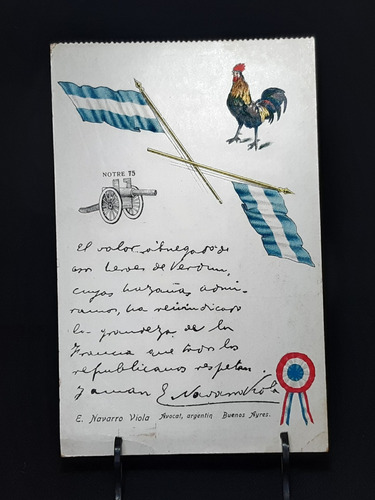 NOTRE 75
El valor abnegado de
los héroes de Verdun,
cuyas hazañas admi-
ramos, ha reivindicado
la grandeza de la
Francia que todos los
republicanos respetan.
E Navarro Viola
E. Navarro Viola Avocat, argentin Buenos Ayres.